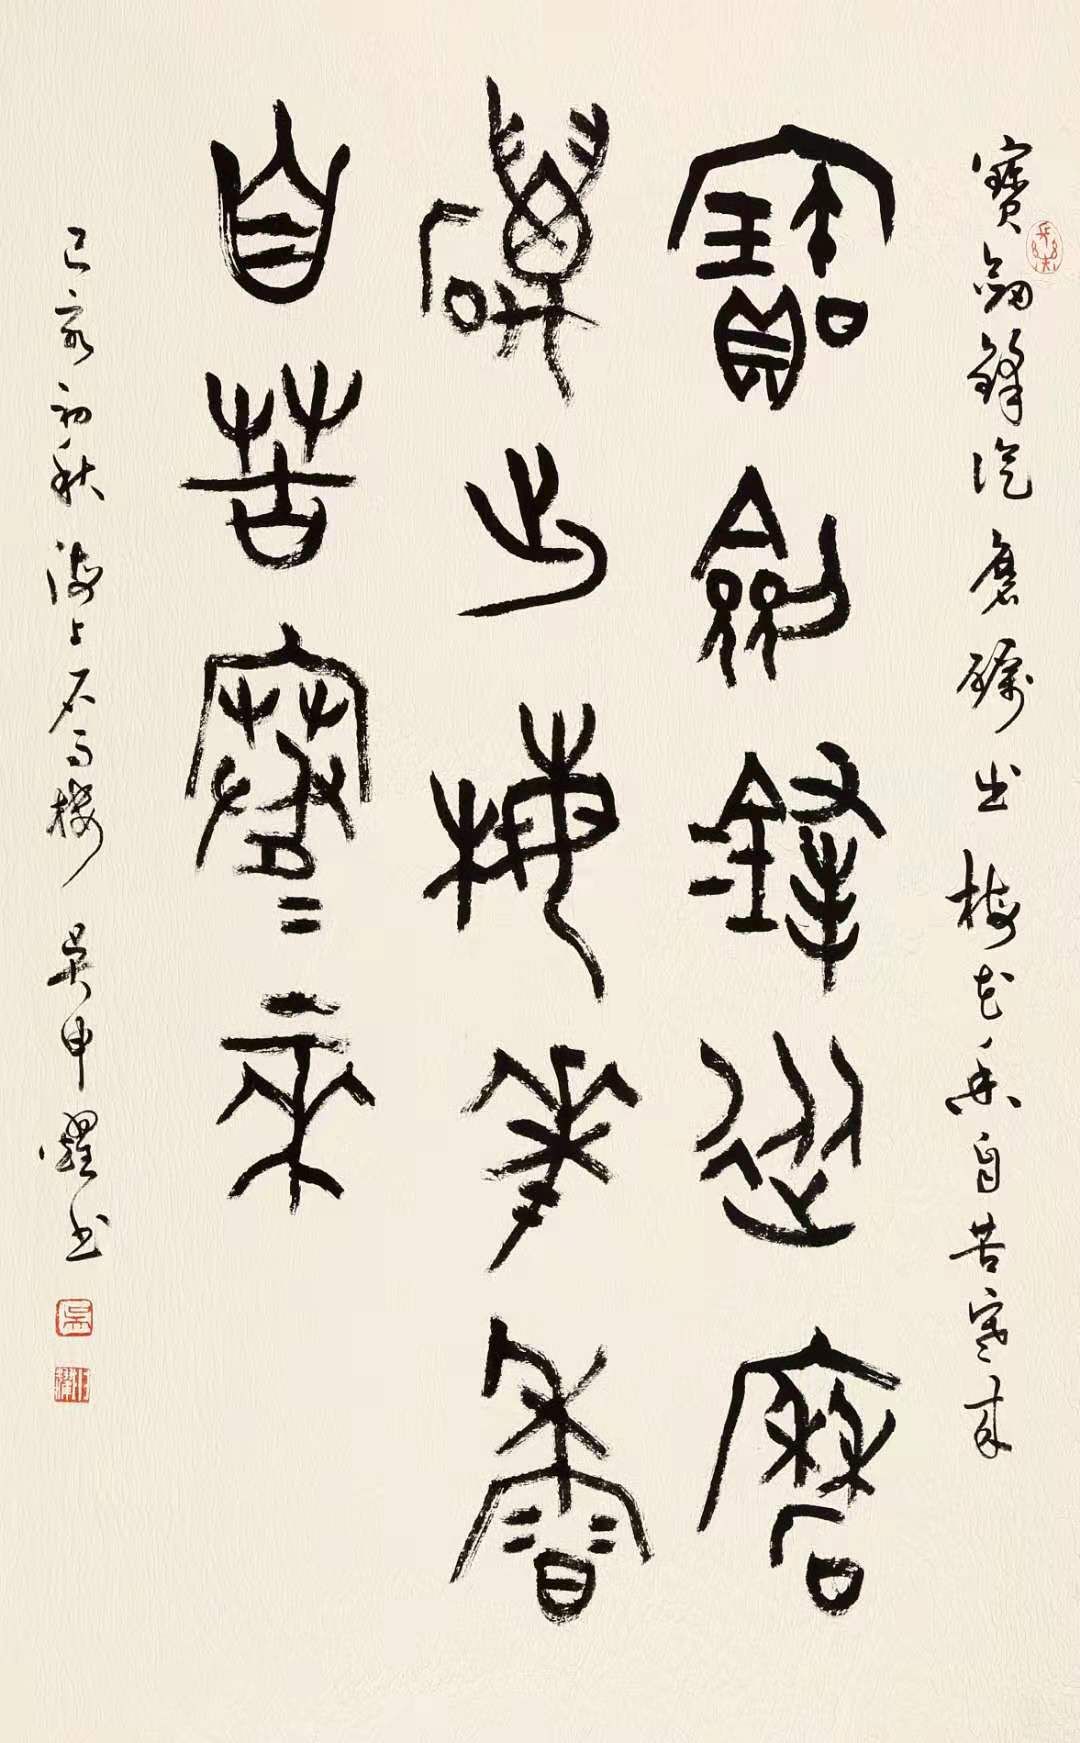 寶劍鋒從磨礪出梅花香自苦寒來
寶劍鋒從磨
礪出梅華香
自苦寒來
己亥初秋海上石樓吴申耀书